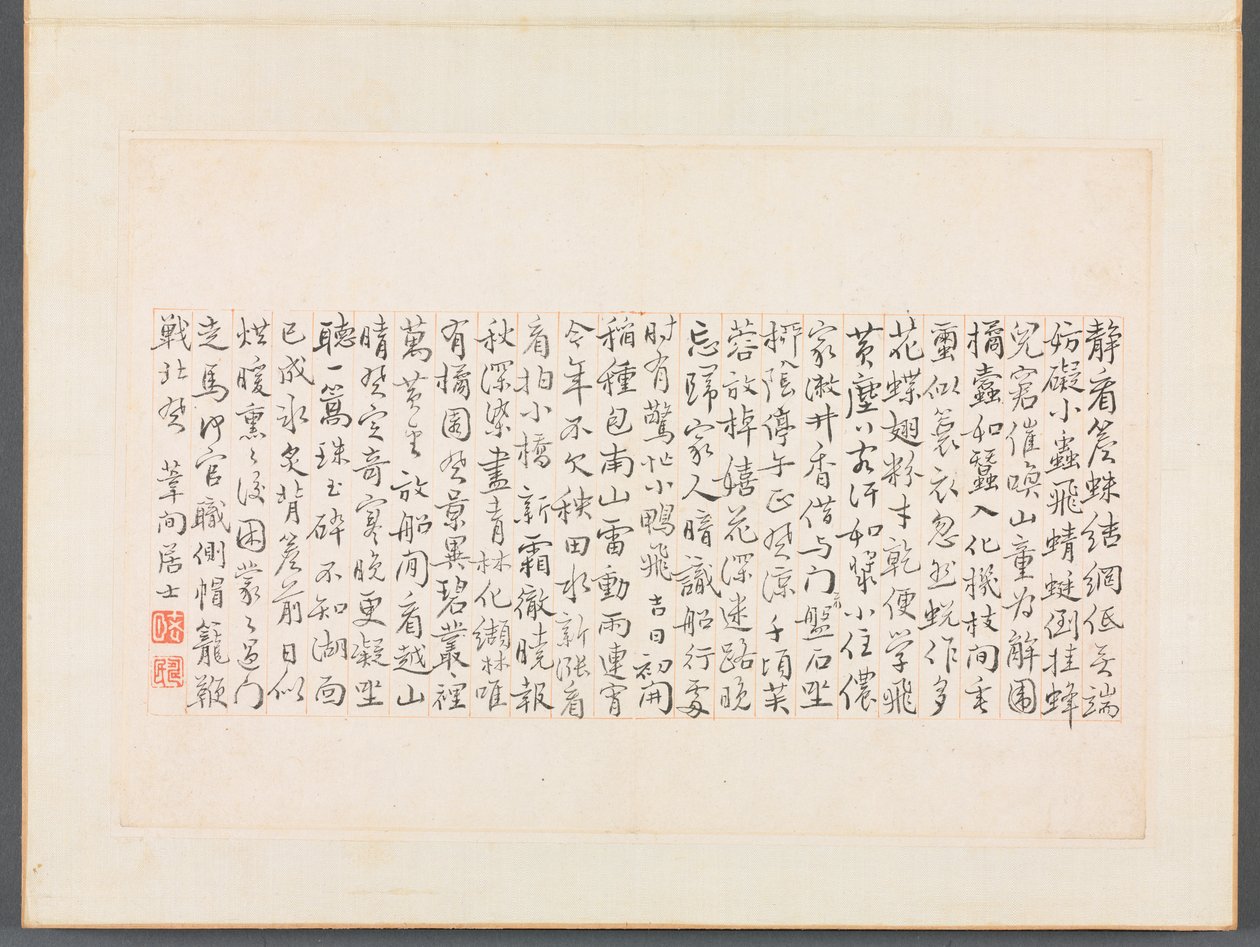 靜看簷蛛結網低无端
妨礙小蟲飛蜻蜓倒挂蜂
兒窘催喚山童为解圍
橘蠹如蠶入化機枝间垂
蠒似蓑衣忽然蛻作多
花蝶翅粉才乾便学飛
黃塵行客汗如漿小住儂
家漱井香借与门前盤石坐
柳陰停午正風涼千頃芙
蓉放棹嬉花深迷路晚
忘歸家人暗識船行處
时有驚忙小鴨飛吉日初開
稻種包南山雷動雨連宵
今年不欠秧田水新漲看
看拍小橋新霜徹曉報
秋深染盡青林化纈林唯
有橘園風景異碧叢〻裡
萬黃金放船閒看越山
晴風定奇寒晚更凝坐
聽一篙珠玉碎不知湖面
已成冰炙背簷前日似
烘暖熏〻後困蒙〻過门
走馬何官職側帽籠鞭
戰北風 葦间居士